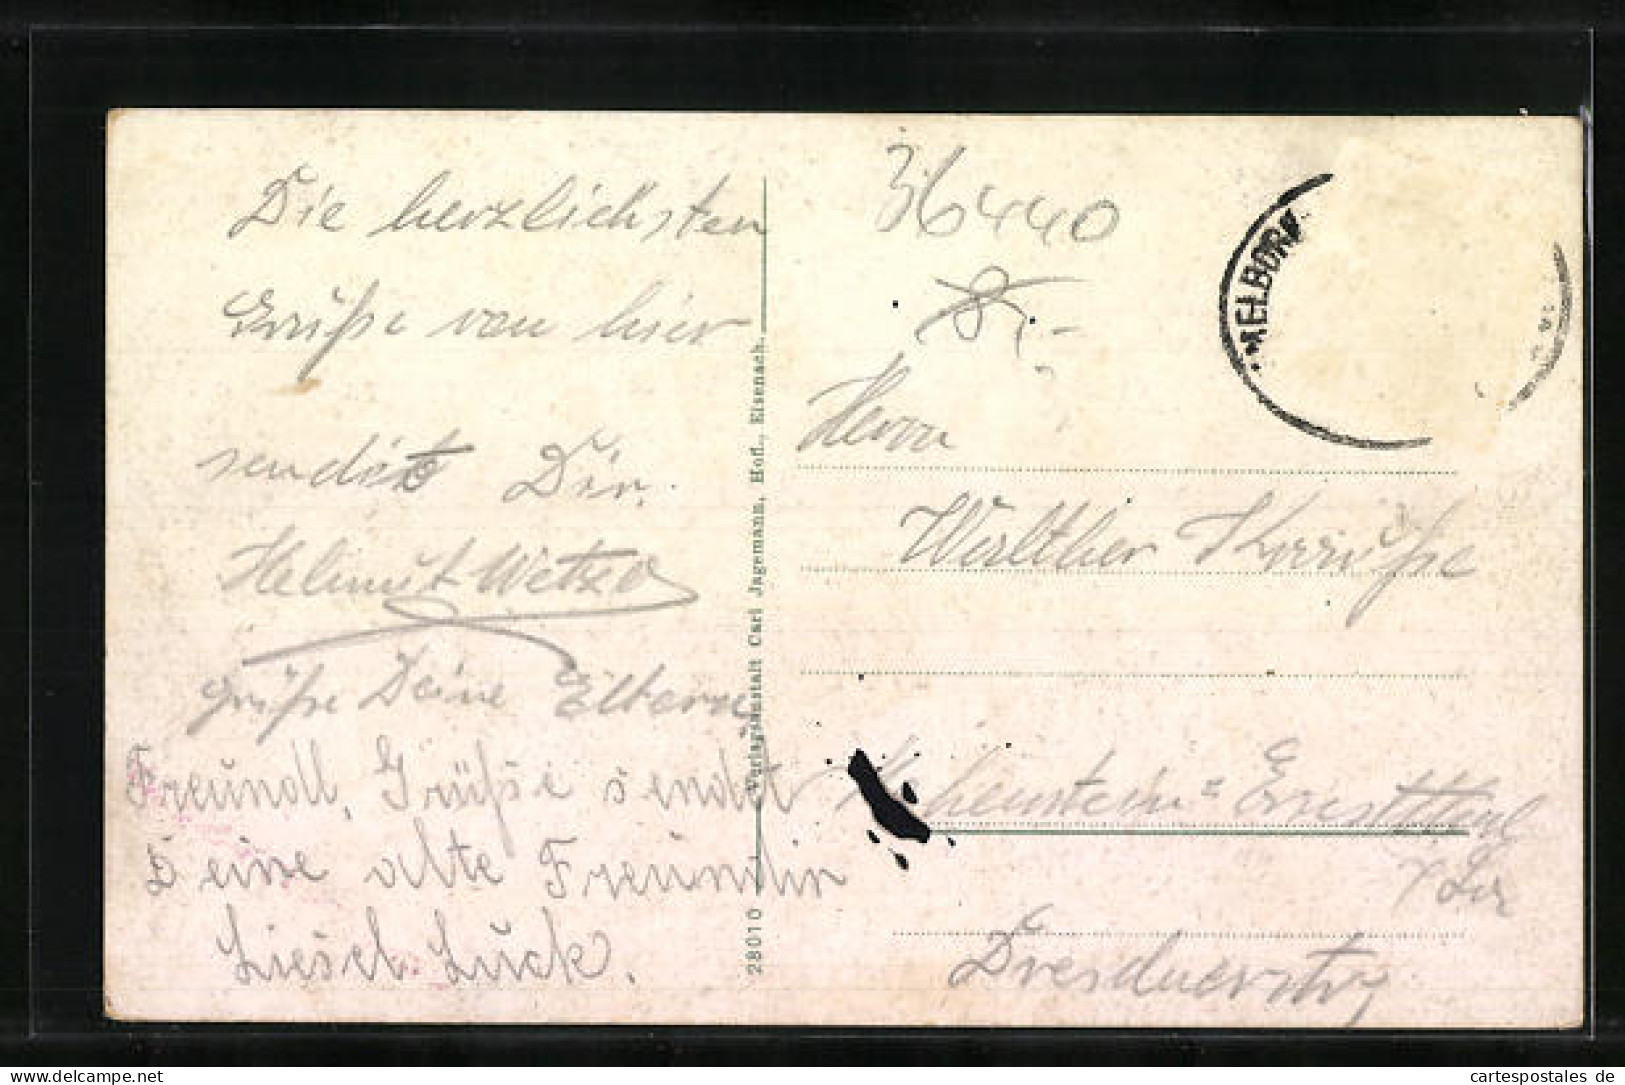 Die herzlichsten
Grüße von hier
sendet Dir
Helmut Wetzel
grüße Deine Eltern
Freundl. Grüße sendet
Deine alte Freundin
Liesel Luck.
28010 Verlagsanstalt Carl Jagemann, Hofl., Eisenach.
36440
MEHLBORN
Herrn
Walther Krauße
Hohenstein=Ernstthal
Dresdnerstr
www.cartespostales.de